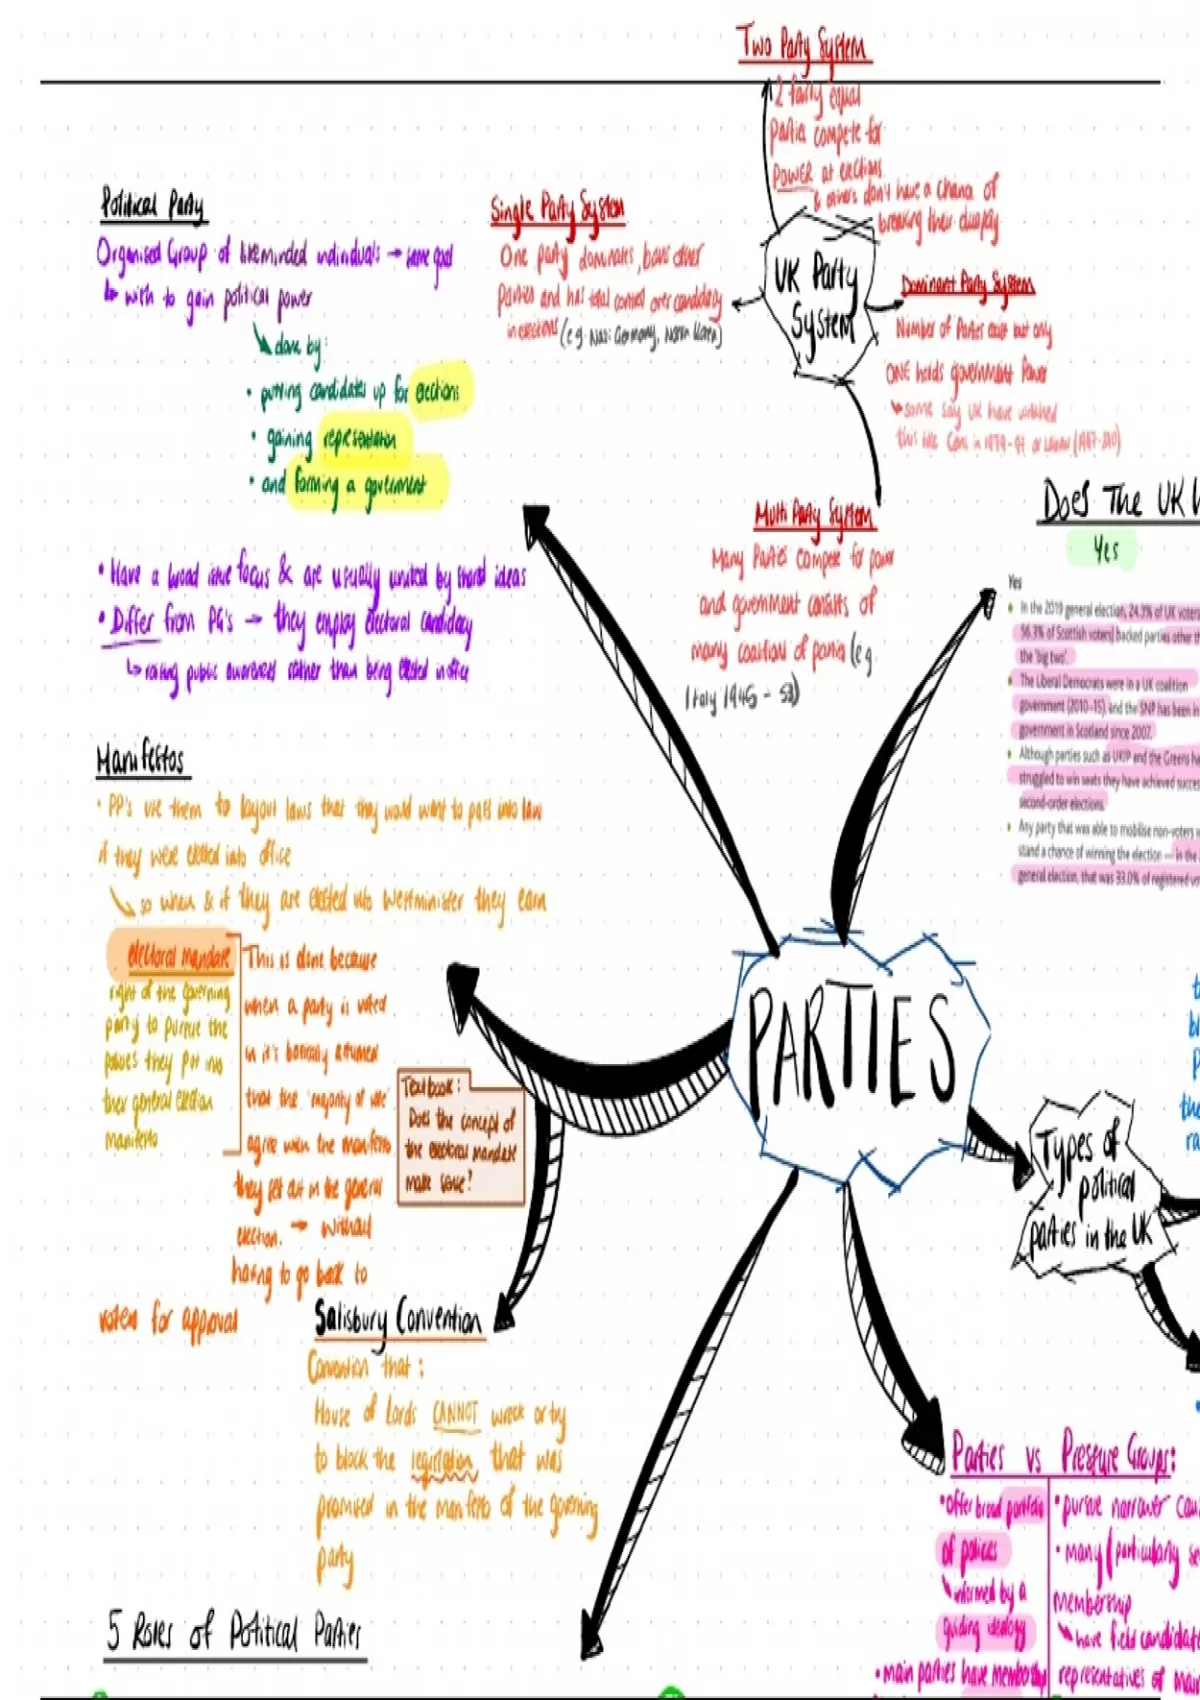 Two Party System
2 fairly equal
Parties compete for
POWER at elections
& others don't have a chance of
breaking their duopoly
Political Party
Organised Group of likeminded individuals → same goal
↳ wish to gain political power
↳ done by:
• putting candidates up for elections
• gaining representation
• and forming a government
Single Party System
One party dominates, bans other
Parties and has total control over candidacy
in elections (e.g. Nazi Germany, North Korea)
UK Party
System
Dominant Party System
Number of Parties exist but only
ONE holds government Power
↳ some say UK have witnessed
this like Cons in 1979-97 or Labour (1997-2010)
Multi Party System
Many Parties compete for power
and government consists of
many coalitions of parties (e.g.
Italy 1945 - 93)
Does The UK
Yes
Yes
• In the 2019 general election, 24.3% of UK voters
56.3% of Scottish voters) backed parties other th
the 'big two'.
• The Liberal Democrats were in a UK coalition
government (2010–15), and the SNP has been in
government in Scotland since 2007.
• Although parties such as UKIP and the Greens ha
struggled to win seats they have achieved succes
second-order elections.
• Any party that was able to mobilise non-voters w
stand a chance of winning the election — in the 2
general election, that was 33.0% of registered vo
• Have a broad issue focus & are usually united by shared ideas
• Differ from PG's → they employ electoral candidacy
↳ raising public awareness rather than being elected in office
Manifestos
• PP's use them to layout laws that they would want to pass into law
if they were elected into office
↳ so when & if they are elected into Westminister they earn
electoral mandate
right of the governing
party to pursue the
policies they put into
their general election
manifesto
This is done because
when a party is voted
in it's basically assumed
that the 'majority of vote'
agree with the manifesto
they set out in the general
election. → without
having to go back to
voters for approval
Textbook:
Does the concept of
the electoral mandate
make sense?
PARTIES
Types of
political
parties in the UK
Salisbury Convention
Convention that:
House of Lords CANNOT wreck or try
to block the legislation that was
promised in the manifesto of the governing
party
5 Roles of Political Parties
Parties vs Pressure Groups:
• offer broad portfolio
of policies
↳ informed by a
guiding ideology
• main parties have membership
• pursue narrower cau
• many (particularly se
membership
↳ have field candidate
representatives of main